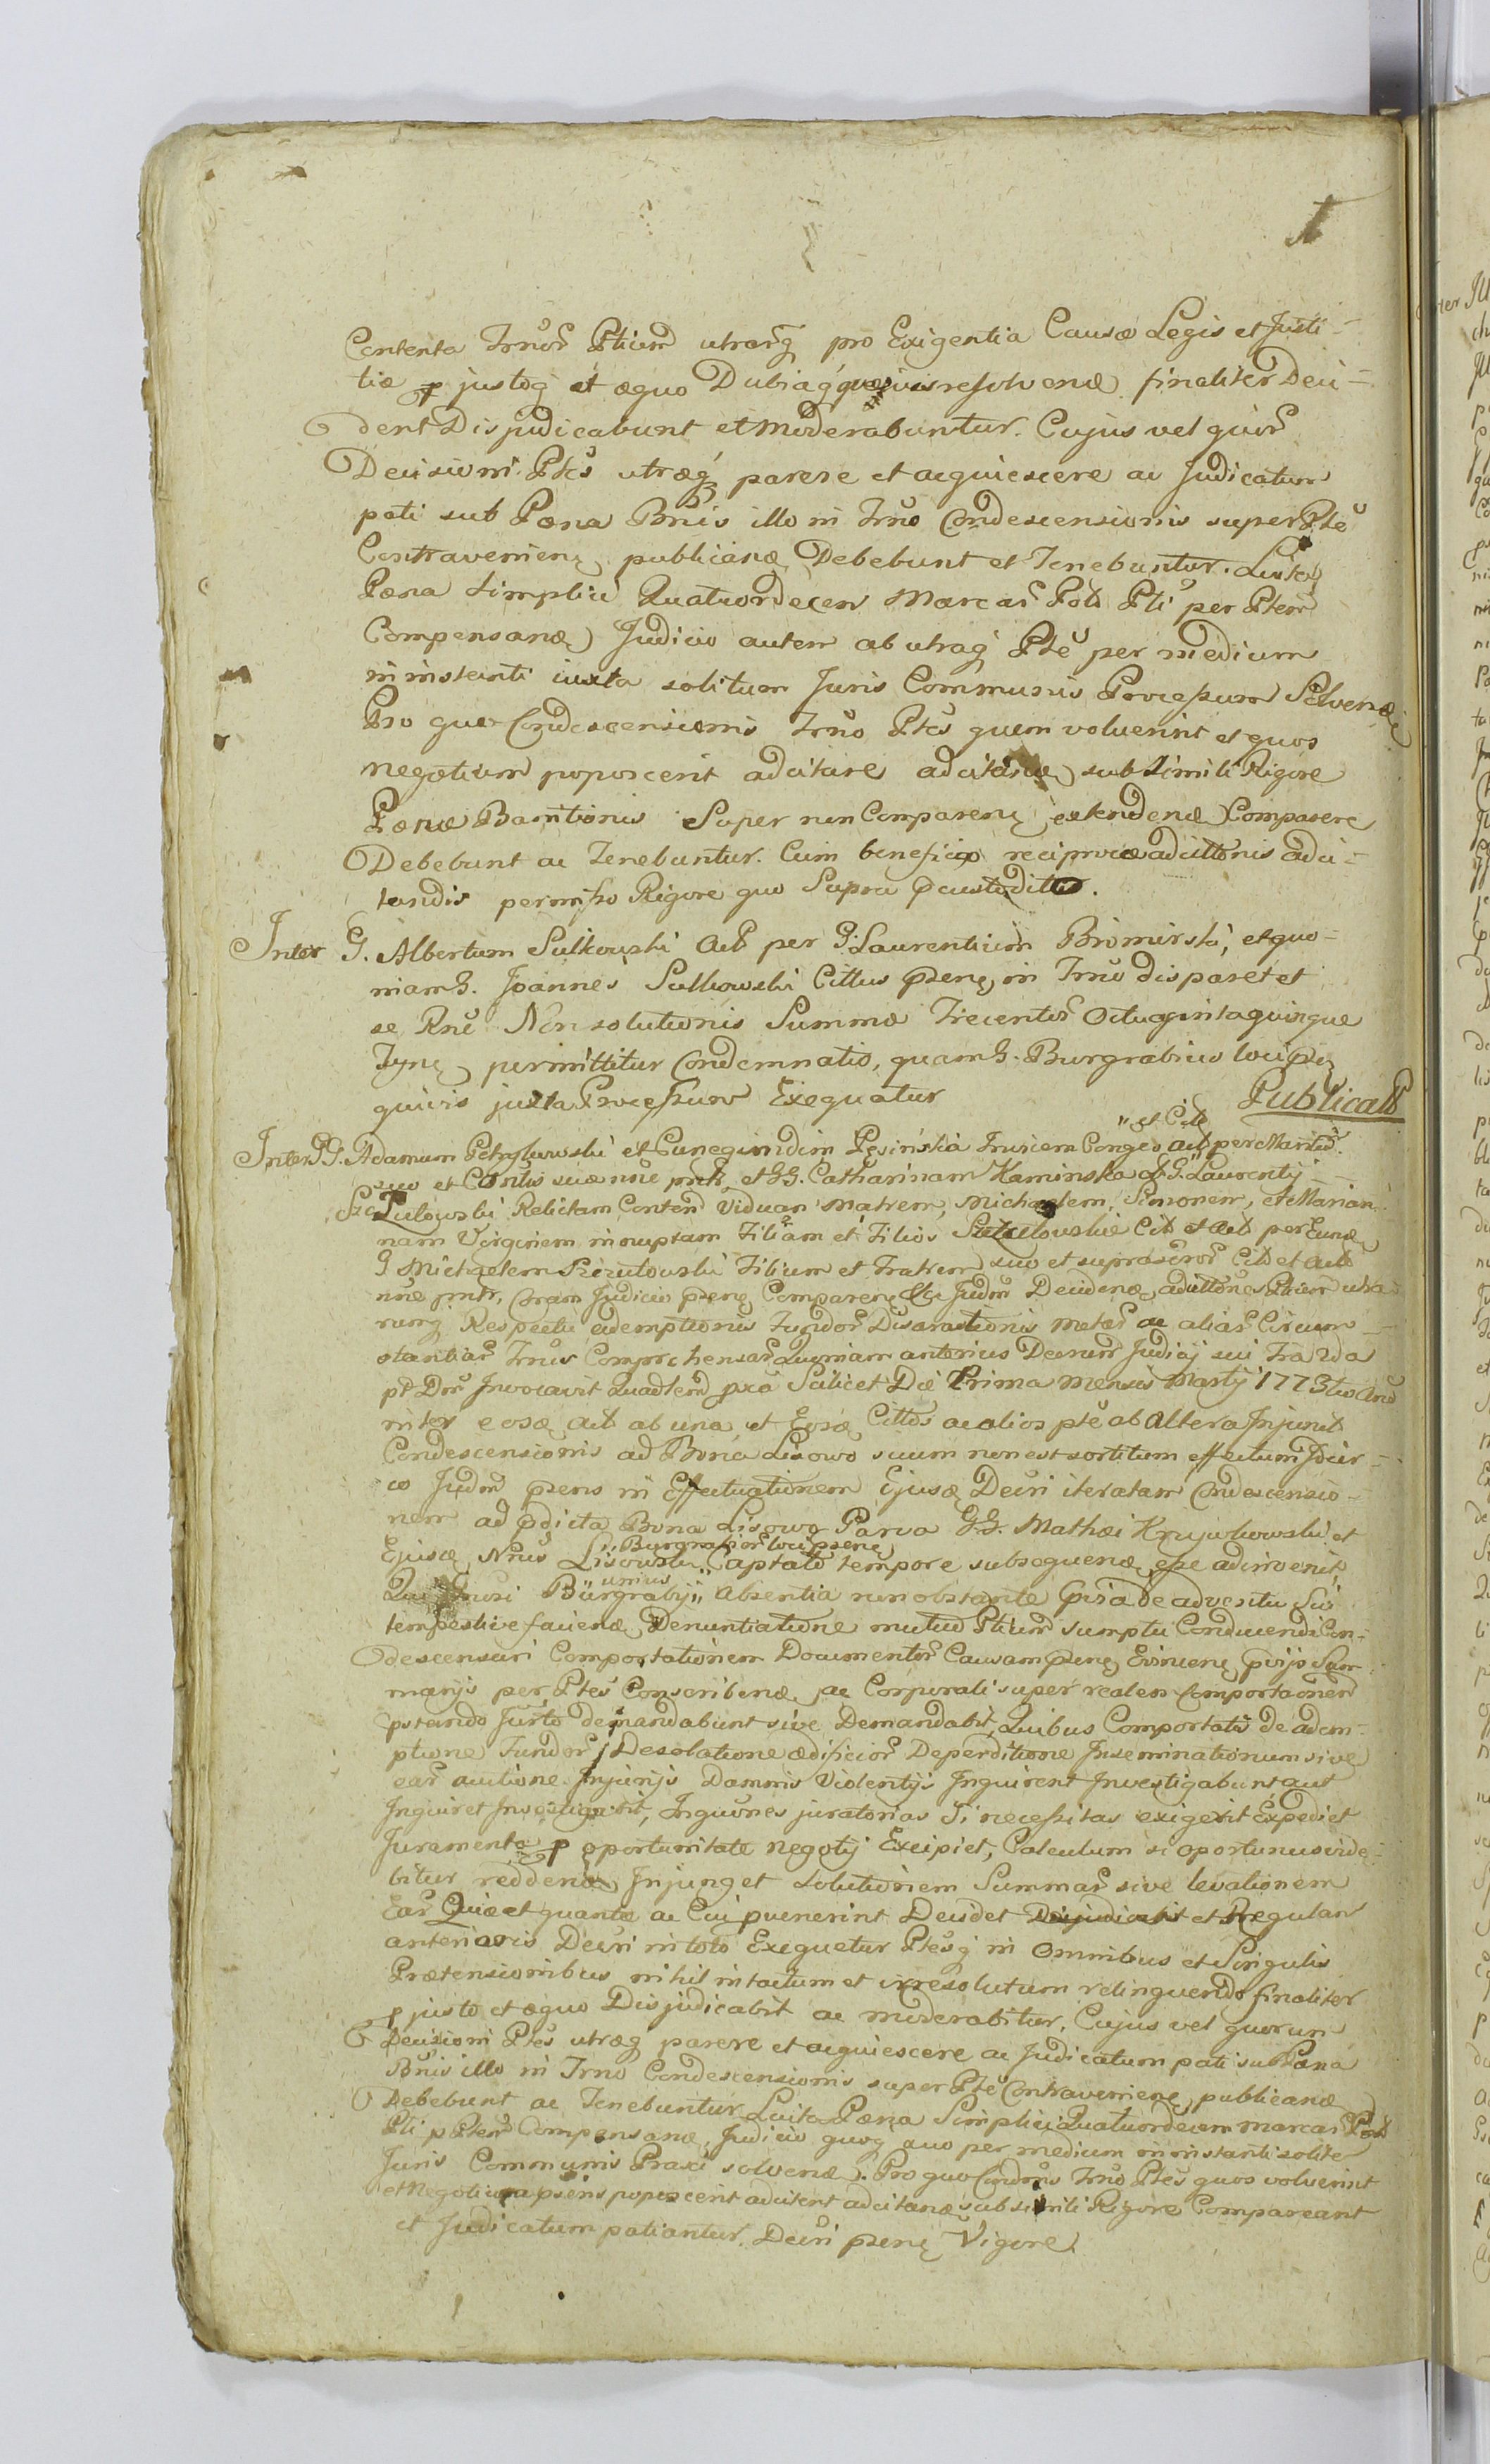 Contenta Trnor Ptium utrarq pro Exigentia Causæ Legis et Justi-
tiæ p justoq et æquo Dubiaq quævis resolvenæ finaliter Deci-
dent Disjudicabunt et Moderabuntur. Cujus vel quor
Decisioni Ptes utræq parere et acquiescere ac Judicatum
pati sub Pæna Bnis illo in Trno Condescensionis super Pte
Contravenienę publicanæ Debebunt et Tenebuntur. Luita
Pæna simplici Quatuordecem Marcar Pol Pti per Ptem
Compensanæ Judicio autem ab utraq Pte per medium
in instanti iuxta solitum Juris Communis Processum Solvenæ
Pro quo Condescensionis Trno Ptes quem voluerint et quos
negotium poposcerit adcitare adcitanæ sub simili Rigore
Pænæ Bannitionis Super non Comparenę extendenæ Comparere
Debebunt ac Tenebuntur. Cum beneficio reciprocæ adcittonis adci-
tandis permisso Rigore quo Supra Pcustodito.
Inter G. Albertum Sulkowski Act per G. Laurentium Bromirski, et quo-
niam G. Joannes Sulkowski Cittus Psenę in Trno disparet et
se Rne Non solutionis Summæ Trecentor Octuagintaquinque
Tynę permittitur Condemnatio, quam G. Burgrabius loci Psę
quivis juxta Processum Exequatur Publicatt
"et Cit
Inter GG. Adamum Petrykowski et Cunegundim Pęsinskia Invicem Conges act per Maritũ
suo et Contis suæ nne pntẽ et GG. Catharinam Kaminska G. Laurentij
Szczutowski Relictam Conten Viduam Matrem, Michaelem, Simonem, et Marian
nam Virginem innuptam Filiam et Filios Szczutowskie Cit et Act per Eunæ
G Michaelem Szczutowski Filium et Fratrem suo et suprascror Cit et Act
nne pntr, Coram Judicio psenę Comparenę Judm Decidenæ adcittones Ptium utra-
rumq Respectu ademptionis Fundor Disarationis Metar ac aliar Circum-
stantiar Trnis Comprehensar Quoniam anterius Decrum Judicij sui
pt Dnr Invocavit Quadtend pro Scilicet Die Prima Mensis Martij 1773tio Anno
inter eosæ Act ab una, et Eosæ Cittos ac alios pte ab Altera Injunct
Condescensionis ad Bona Lisowo suum non est sortitum effectum Idcir-
co Judm psens in Effectuationem Ejusæ Decri iteratam Condescensio-
nem ad Pdicta Bona Lisowo Parva GG. Mathæi Krzywkowski et
"Burgrabior loci psenę
Ejusæ Nnis Lisowski Captato tempore subsequenæ esse adinvenit
unius
Qui Burgrabij" Absentia non obstante Pvia de adventu Sui
tempestive facienæ Denuntiatione mutuo Ptium sumptu Conducendi Con-
descensuri Comportationem Documentor Causam psenę Evincenę pvijs Sum-
marijs per Ptes Conscribenæ ac Corporali super realem Comportaonem
pstando Jurto demandabunt sive Demandabit, Quibus Comportatis de adem-
ptione Fundor, Desolatione ædificior Deperditione Inseminationum sive
ear auctione Injurijs Damnis Violentijs Inquirent Investigabunt aut
Inquiret Investigabit, Inquones juratorias Si necessitas exigerit Expediet
Juramenta p oportunitate negotij Excipiet, Calculum si oportunus vide-
bitur reddend Injunget solutionem Summar sive levationem
Ear Quæ et quantæ ac Cui pvenerint Decidet Disjudicabit et Regulam
anterioris Decri in toto Exequetur Ptesq in Omnibus et Singulis
Prætensionibus nihil intactum et irresolutum relinquendo finaliter
p justo et æquo Disjudicabit ac moderabitur. Cujus vel quorum
Decisioni Ptes utræq parere et acquiescere ac Judicatum pati sub Pæna
Bnis illo in Trno Condescensionis super Pte Contravenienę publicanæ
Debebunt ac Tenebuntur Luita Pæna Simplici Quatuordecem marcar Pol
Pti p Ptem Compensanæ, Judicio quoq suo per medium in instanti solite
Juris Communis Praxi solvenæ. Pro quo Condnis Trno Ptes quos voluerint
et Negotium psens poposcerit adcitent adcitanæ sub simili Rigore Compareant
et Judicatum patiantur. Decri psenę Vigore.